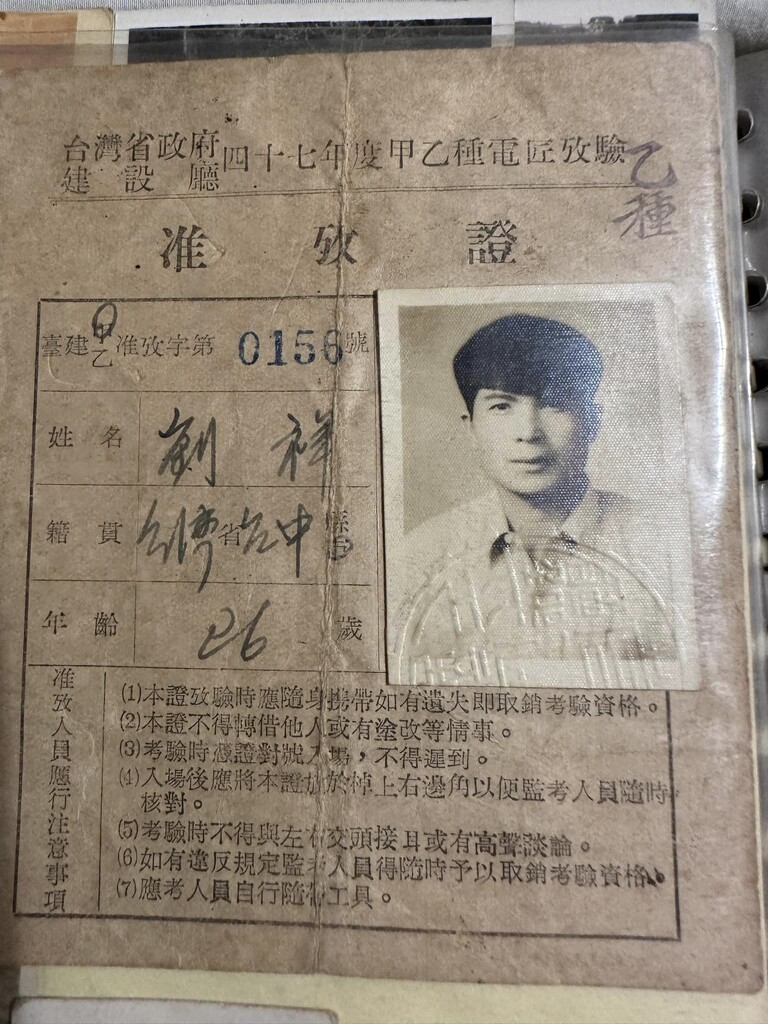 台灣省政府建設廳四十七年度甲乙種電匠攷驗
乙種
准攷證
臺建甲乙准攷字第0156號
姓名 劉祥
籍貫 台灣省台中縣市
年齡 26 歲
准攷人員應行注意事項
(1)本證攷驗時應隨身携帶如有遺失即取銷考驗資格。
(2)本證不得轉借他人或有塗改等情事。
(3)考驗時憑證對號入場，不得遲到。
(4)入場後應將本證放於棹上右邊角以便監考人員隨時
核對。
(5)考驗時不得與左右交頭接耳或有高聲談論。
(6)如有違反規定監考人員得隨時予以取銷考驗資格。
(7)應考人員自行隨帶工具。